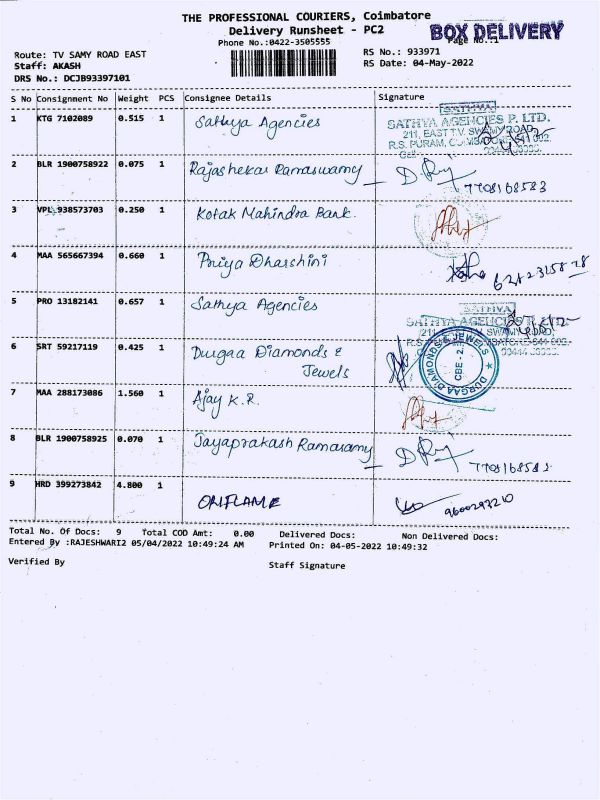 THE PROFESSIONAL COURIERS, Coimbatore
Delivery Runsheet - PC2
BOX DELIVERY
Phone No.:0422-3505555
Page No.:1
Route: TV SAMY ROAD EAST
RS No.: 933971
Staff: AKASH
RS Date: 04-May-2022
DRS No.: DCJB93397101
S No Consignment No Weight PCS Consignee Details Signature
1 KTG 7102089 0.515 1 Sathya Agencies
SATHYA
SATHYA AGENCIES P. LTD.
211, EAST T.V. SWAMY ROAD,
R.S. PURAM,
2 BLR 1900758922 0.075 1 Rajashekar Ramaswamy
7708168583
3 VPL 938573703 0.250 1 Kotak Mahindra Bank.
4 MAA 565667394 0.660 1 Priya Dharshini
5 PRO 13182141 0.657 1 Sathya Agencies
SATHYA
SATHYA AGENCIES P. LTD.
6 SRT 59217119 0.425 1 Durgaa Diamonds &
Jewels
DURGAA DIAMONDS & JEWELS
CBE - 2.
7 MAA 288173086 1.560 1 Ajay K.R.
8 BLR 1900758925 0.070 1 Jayaprakash Ramasamy
9 HRD 399273842 4.800 1 ORIFLAME
9600293210
Total No. Of Docs: 9 Total COD Amt: 0.00 Delivered Docs: Non Delivered Docs:
Entered By :RAJESHWARI2 05/04/2022 10:49:24 AM Printed On: 04-05-2022 10:49:32
Verified By
Staff Signature